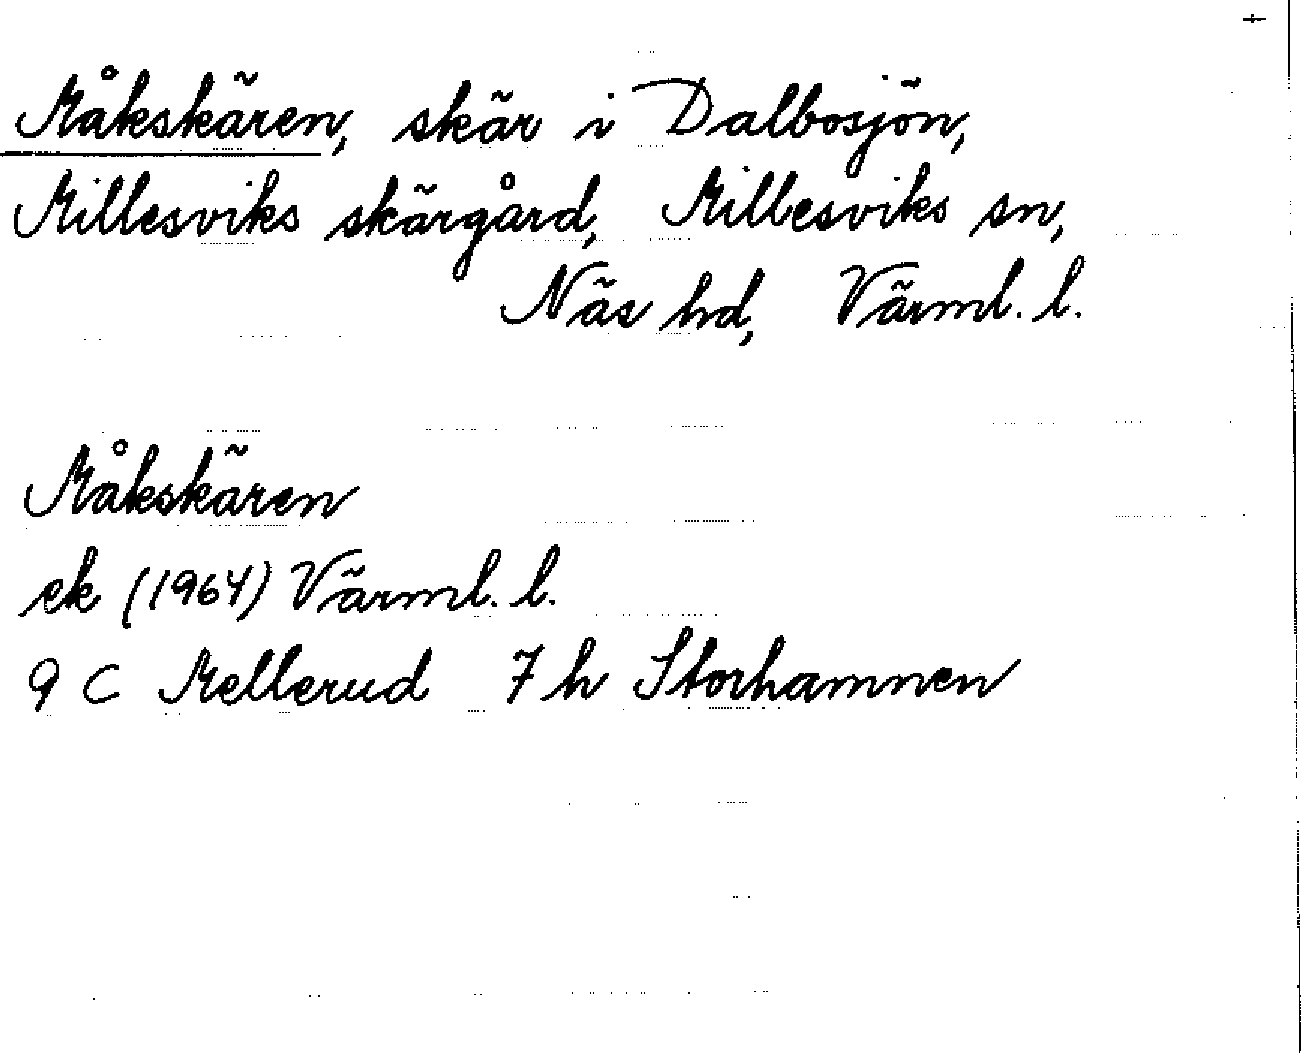 Måkskären, skär i Dalbosjön,
Millesviks skärgård, Millesviks sn,
Näs hd, Värml. l.
Måkskären
ek (1964) Värml. l.
9 C Mellerud 7 h Storhamnen